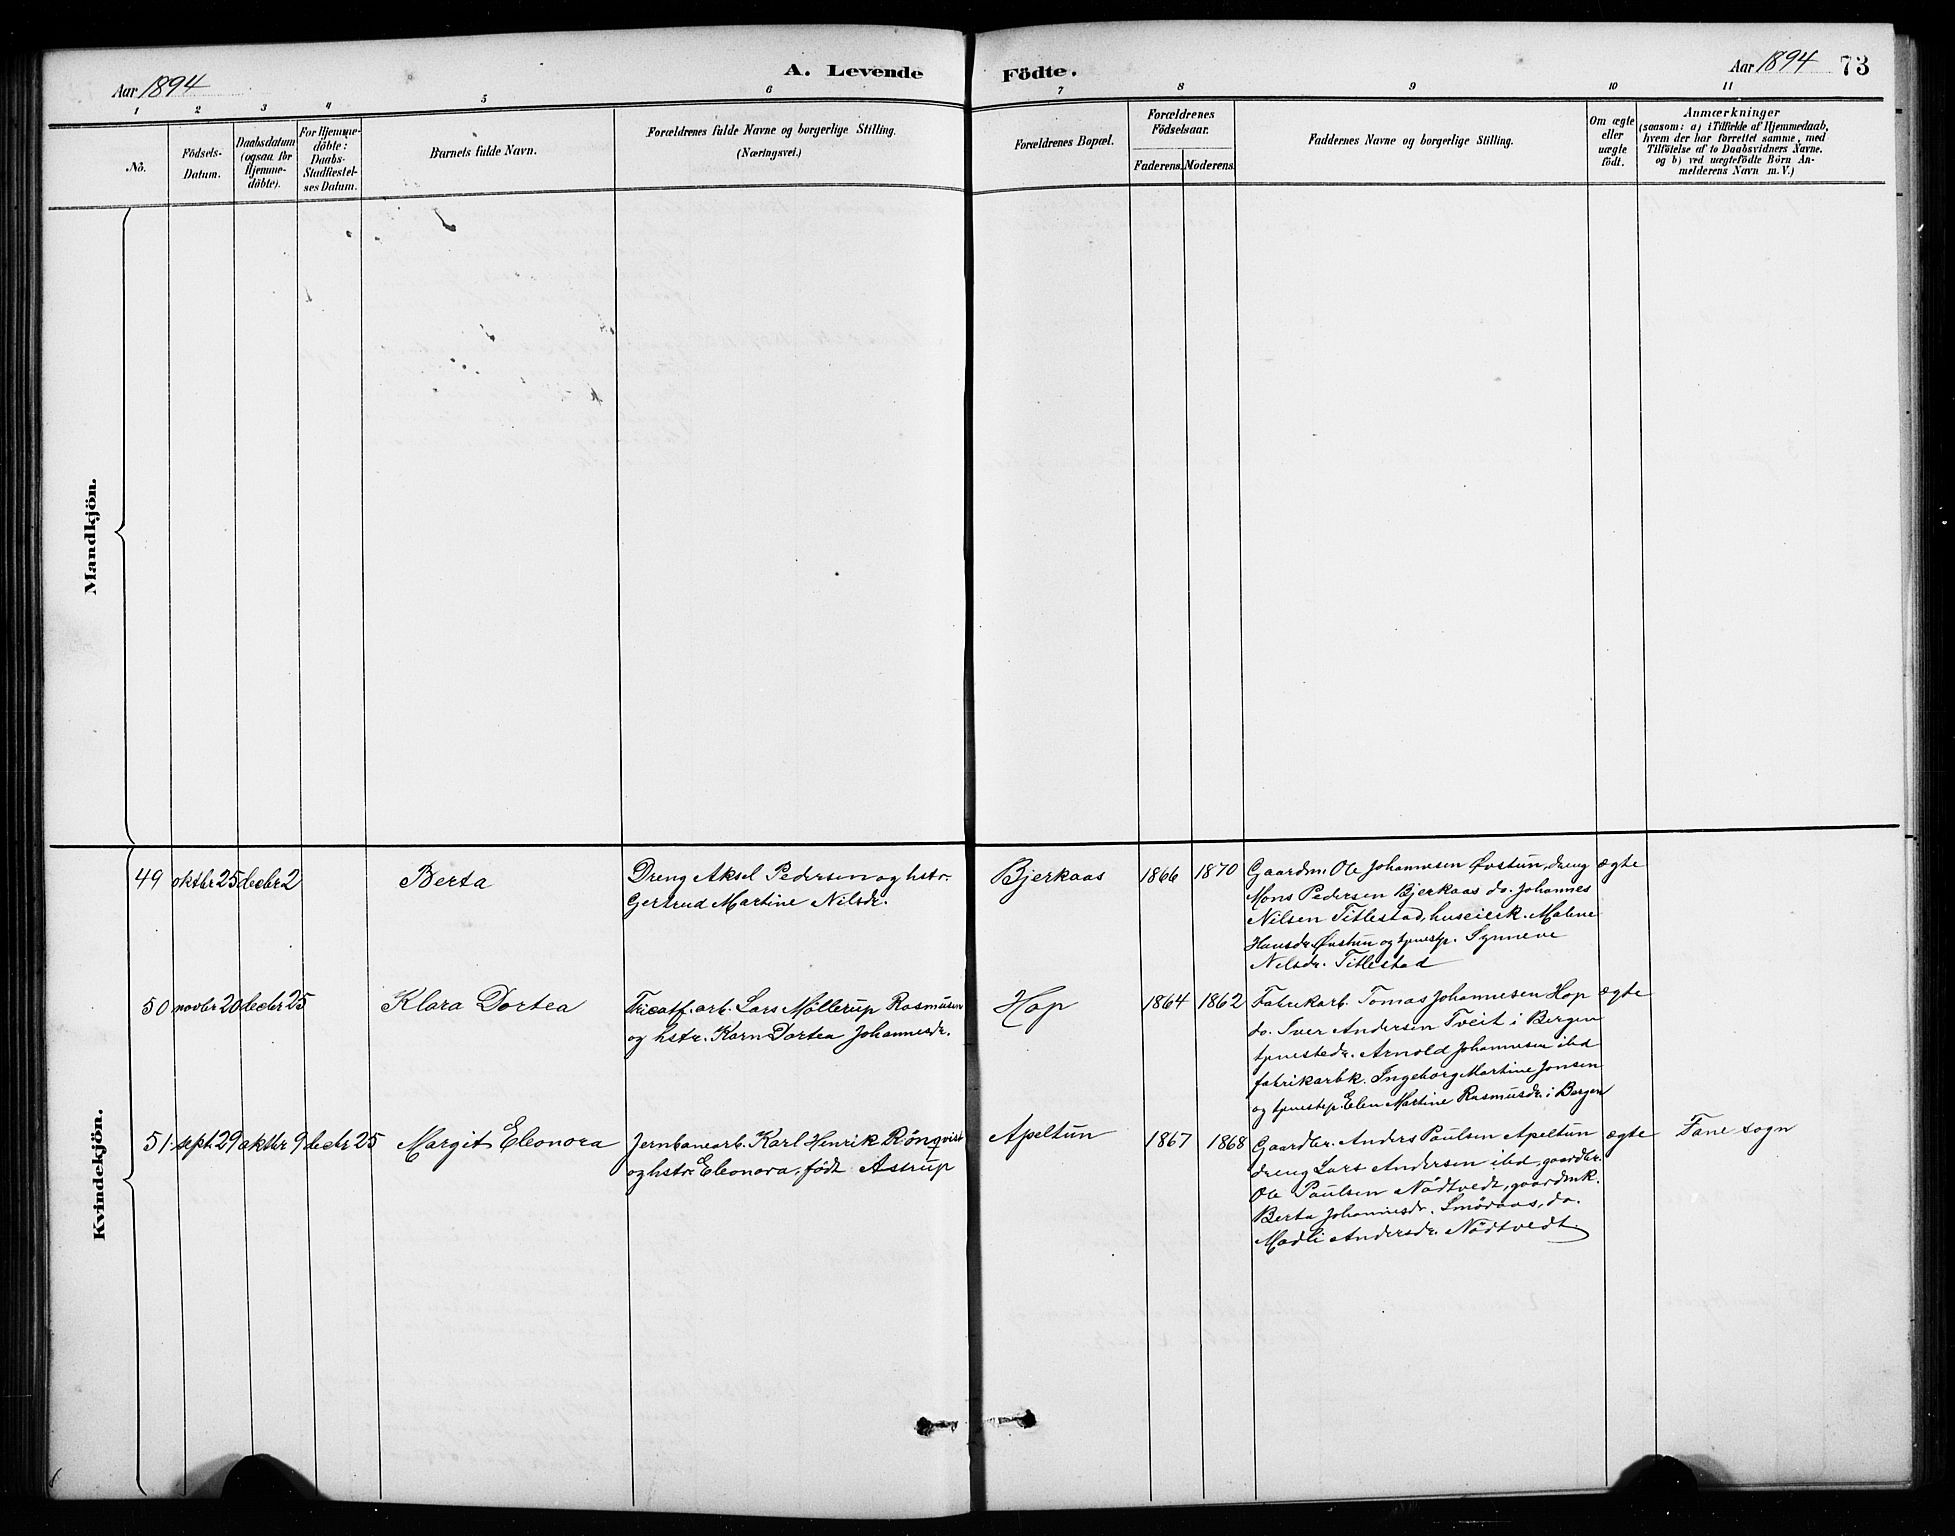 Aar 1894
A. Levende
Födte.
Aar 1894 73
1 2 3 4 5 6 7 8 9 10 11
No.
Födsels-
Datum.
Daabsdatum
(ogsaa for
Hjemme-
döbte).
For Hjemme-
döbte:
Daabs-
Stadfæstel-
ses Datum.
Barnets fulde Navn.
Forældrenes fulde Navne og borgerlige Stilling.
(Næringsvei.)
Forældrenes Bopæl.
Forældrenes
Födselsaar.
Faderens. Moderens.
Faddernes Navne og borgerlige Stilling.
Om ægte
eller
uægte
födt.
Anmærkninger
(saasom: a) i Tilfælde af Hjemmedaab,
hvem der har forrettet samme, med
Tilföielse af to Daabsvidners Navne,
og b) ved uægtefödte Börn An-
melderens Navn m. V.)
Mandkjön.
Kvindekjön.
49 oktbr 25 decbr 2 Berta
Dreng Aksel Pedersen og hstr.
Gertrud Martine Nilsdr.
Bjerkaas 1866 1870
Gaardm. Ole Johannesen Øvstun, dreng
Mons Pedersen Bjerkaas do. Johannes
Nilsen Titlestad, huseierk. Malene
Hansdr. Øvstun og tjenestp. Synneve
Nilsdr. Titlestad
ægte
50 novbr 20 decbr 25 Klara Dortea
Tricotf.arb. Lars Möllerup Rasmusen
og hstr. Karn Dortea Johannesdr.
Hop 1864 1862
Fabrikarb. Tomas Johannesen Hop
do. Iver Andersen Tveit i Bergen
tjenestedr. Arnold Johannesen ibd
fabrikarbk. Ingeborg Martine Jonsen
og tjenestep. Elen Martine Rasmusdr. i Bergen
ægte
51. sept. 29 oktbr 9 decbr 25 Margit Eleonora
Jernbanearb. Karl Henrik Rönqvist
og hstr. Eleonora, födt Astrup
Apeltun 1867 1868
Gaardbr. Anders Paulsen Apeltun
dreng Lars Andersen ibd, gaardbr.
Ole Paulsen Nödtvedt, gaardmk.
Berta Johannesdr. Smöraas, do.
Madli Andersdr. Nödtvedt.
ægte
Fane sogn